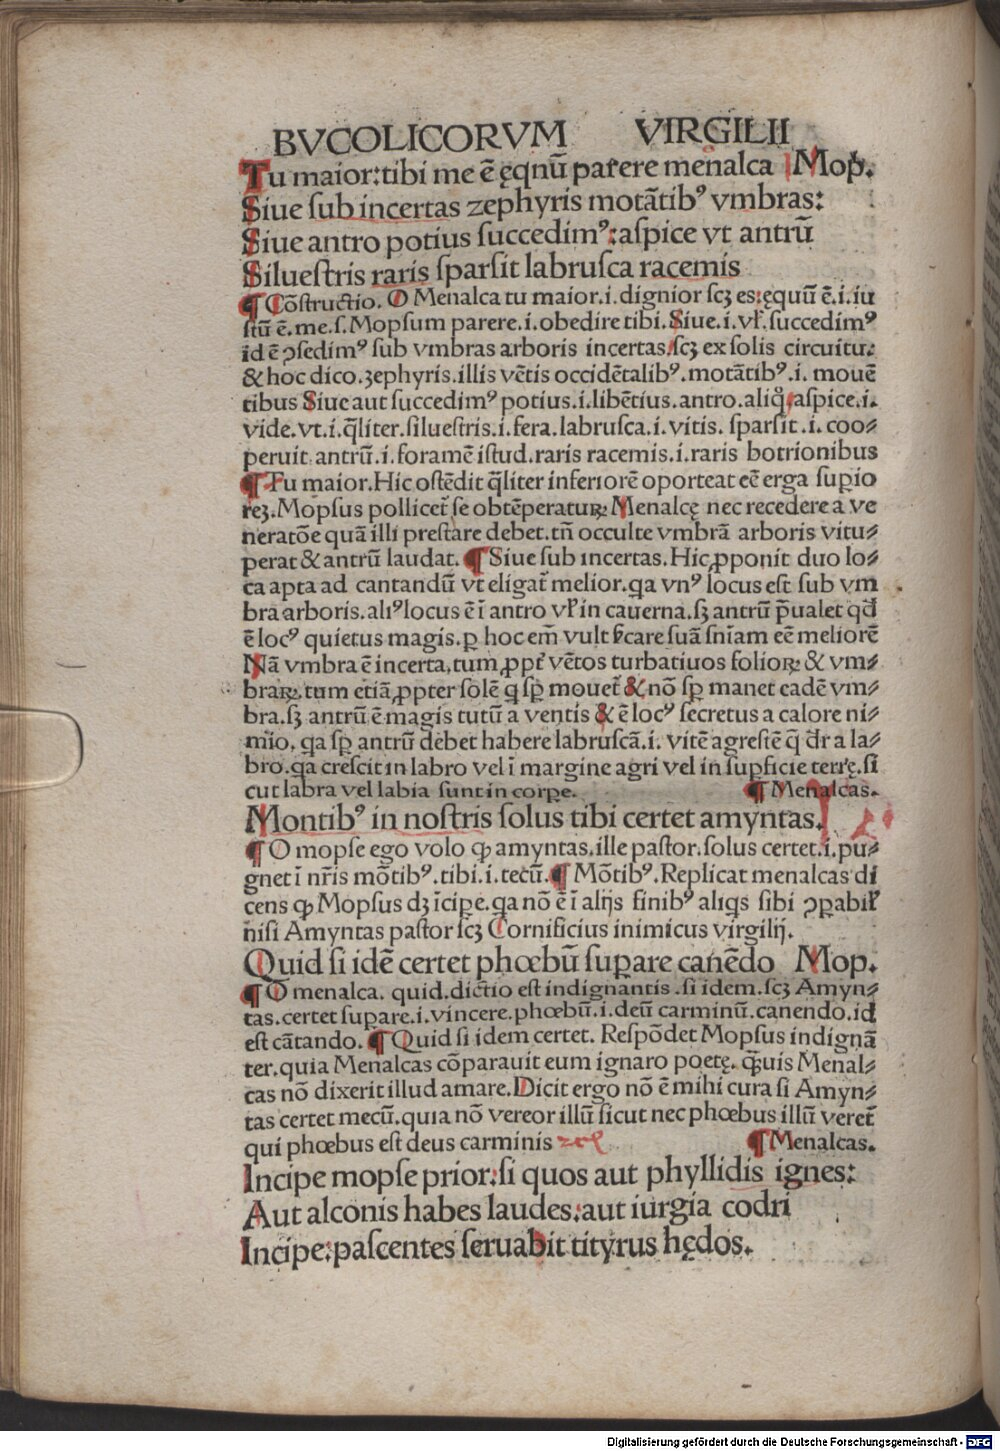 BVCOLICORVM VIRGILII
Tu maior:tibi me ē ęqnū parere menalca Mop.
Siue sub incertas zephyris motātibꝰ vmbras:
Siue antro potius succedimꝰ:aspice vt antrū
Siluestris raris sparsit labrusca racemis
¶ Cōstructio. O Menalca tu maior.i.dignior scꝫ es:ęquū ē.i.iu
stū ē.me.s.Mopsum parere.i.obedire tibi.Siue.i.vľ.succedimꝰ
id ē ꝯsedimꝰ sub vmbras arboris incertas.scꝫ ex solis circuitu:
& hoc dico.zephyris.illis vētis occidētalibꝰ.motātibꝰ.i.mouē
tibus Siue aut succedimꝰ potius.i.libētius.antro.aliq̊.aspice.i.
vide.vt.i.q̄liter.siluestris.i.fera.labrusca.i.vitis. sparsit.i.coo⸗
peruit.antrū.i.foramē istud.raris racemis.i.raris botrionibus
¶ Tu maior.Hic ostēdit q̄liter inferiorē oporteat eē erga supio
reꝫ.Mopsus pollicet̄ se obtēperaturꝝ Menalcę nec recedere a ve
neratōe quā illi prestare debet.tn̄ occulte vmbrā arboris vitu⸗
perat & antrū laudat. ¶ Siue sub incertas.Hic ꝓponit duo lo⸗
ca apta ad cantandū vt eligat̄ melior.qa vnꝰ locus est sub vm
bra arboris.aliꝰ locus ē ī antro vľ in cauerna.sꝫ antrū p̄ualet qđ
ē locꝰ quietus magis.ꝑ hoc em̄ vult v̄icare suā sn̄iam eē meliorē
Nā vmbra ē incerta,tum ꝓpt̄ vētos turbatiuos folioꝝ & vm⸗
braꝝ.tum etiā ꝓpter solē q sꝑ mouet̄ & nō sꝑ manet eadē vm⸗
bra.sꝫ antrū ē magis tutū a ventis & ē locꝰ secretus a calore ni⸗
mio, qa sꝑ antrū debet habere labruscā.i. vitē agrestē q̄ dr̄ a la⸗
bro.qa crescit in labro vel ī margine agri vel in supficie terrę.si
cut labra vel labia sunt in corꝑe. ¶ Menalcas.
Montibꝰ in nostris solus tibi certet amyntas.
¶ O mopse ego volo ꝙ amyntas,ille pastor.solus certet.i.pu⸗
gnet ī nr̄is mōtibꝰ.tibi.i.tecū.¶ Mōtibꝰ.Replicat menalcas di
cens ꝙ Mopsus dꝫ īciꝑe.qa nō ē ī alijs finibꝰ aliqs sibi ꝯꝑabiľ
nisi Amyntas pastor scꝫ Cornificius inimicus virgilij.
Quid si idē certet phœbū suꝑare canēdo Mop.
¶ O menalca. quid.dictio est indignantis.si idem.scꝫ Amyn⸗
tas.certet suꝑare.i.vincere.phœbū.i.deū carminū.canendo.id
est cātando. ¶ Quid si idem certet. Respōdet Mopsus indignā
ter.quia Menalcas cōparauit eum ignaro poetę. q̄uis Menal⸗
cas nō dixerit illud amare.Dicit ergo nō ē mihi cura si Amyn⸗
tas certet mecū.quia nō vereor illū sicut nec phœbus illū veret̄
qui phœbus est deus carminis ¶ Menalcas.
Incipe mopse prior:si quos aut phyllidis ignes:
Aut alconis habes laudes:aut iurgia codri
Incipe:pascentes seruabit tityrus hędos.
Digitalisierung gefördert durch die Deutsche Forschungsgemeinschaft - DFG